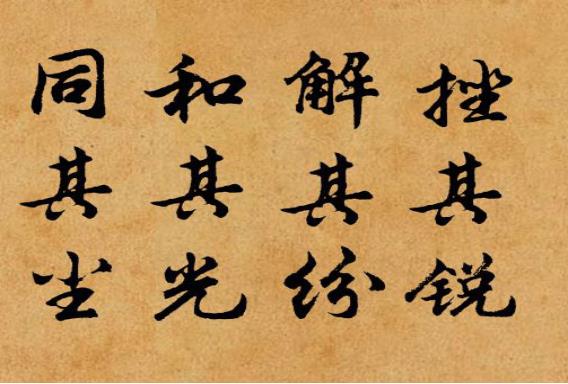 挫其锐
解其纷
和其光
同其尘